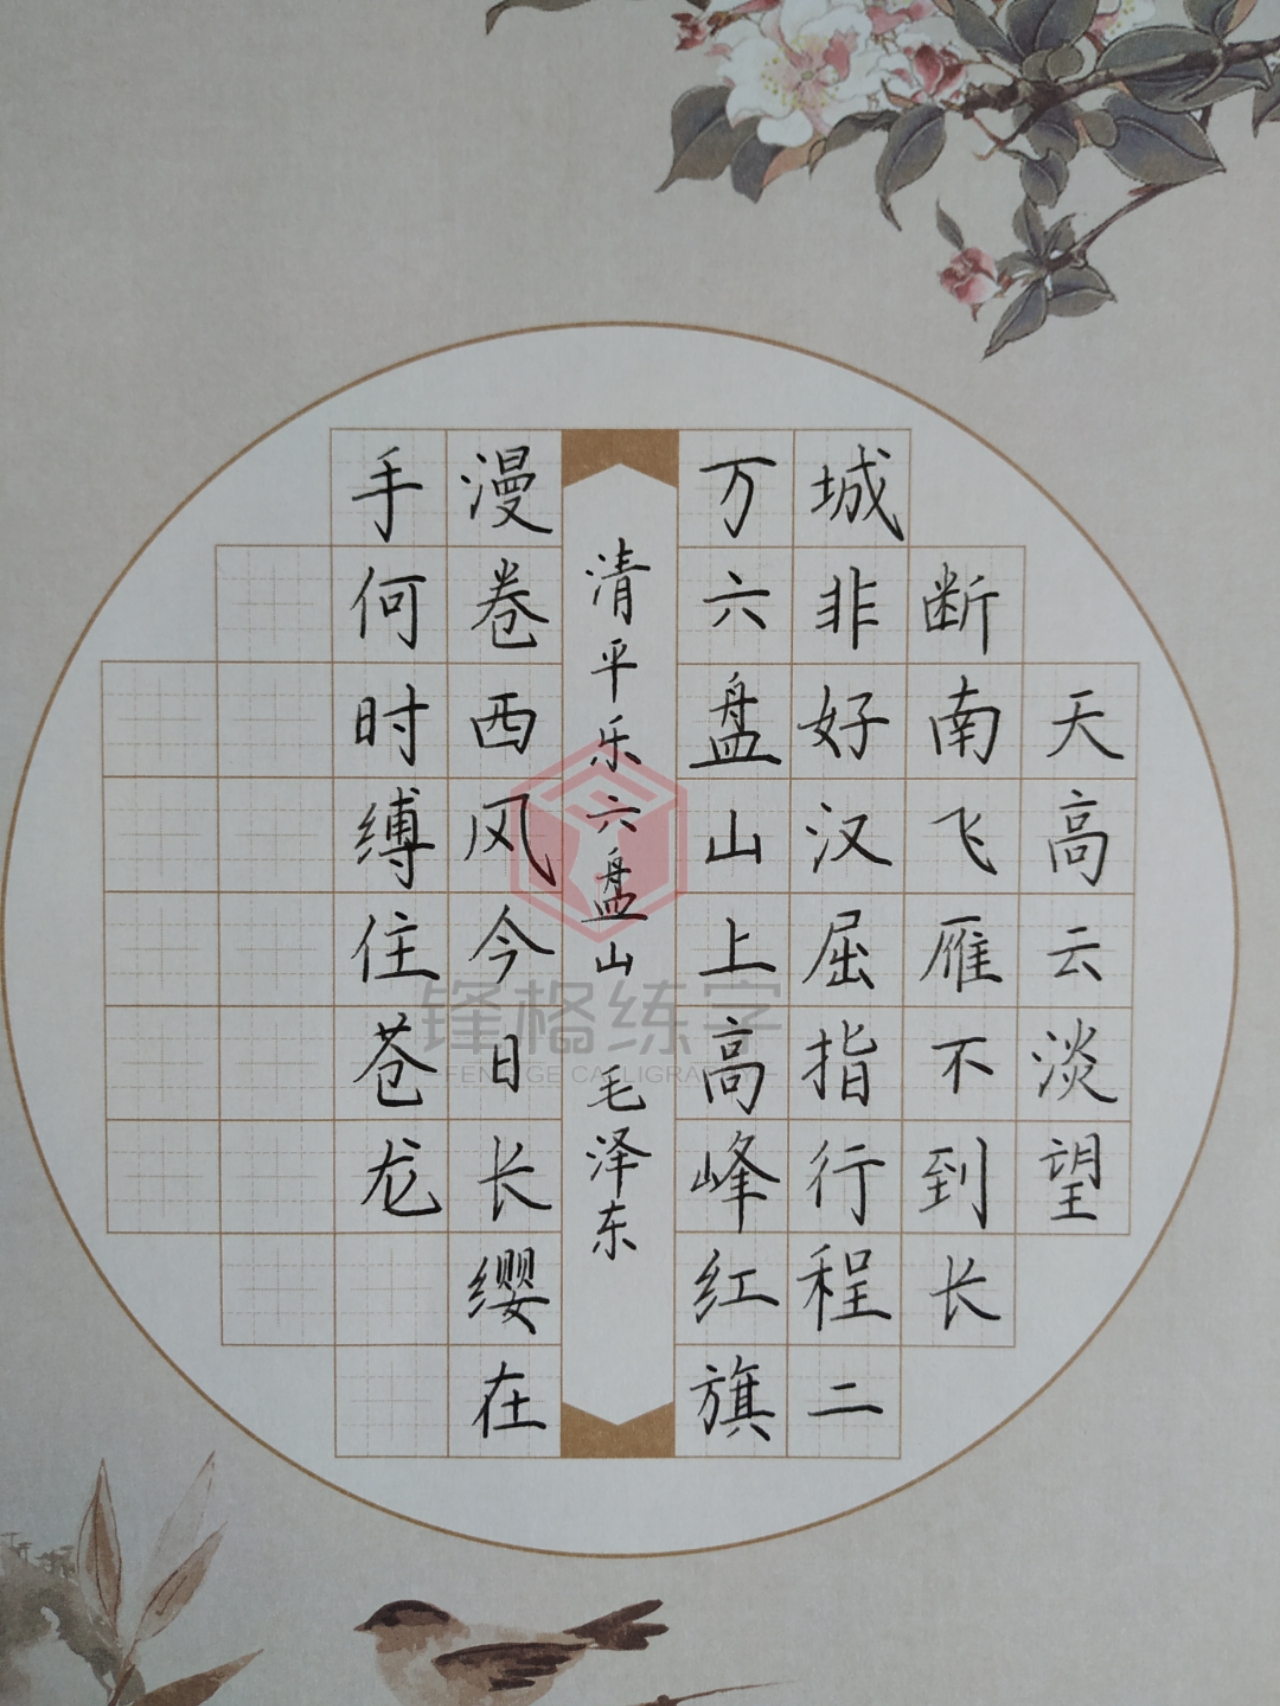 天高云淡望
断南飞雁不到长
城非好汉屈指行程二
万六盘山上高峰红旗
清平乐六盘山 毛泽东
漫卷西风今日长缨在
手何时缚住苍龙
锋格练字